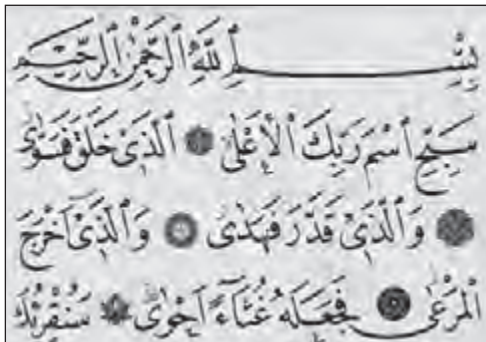 بِسْمِ اللَّهِ الرَّحْمٰنِ الرَّحِيمِ
سَبِّحِ اسْمَ رَبِّكَ الْأَعْلَىٰ الَّذِى خَلَقَ فَسَوّٰى
وَالَّذِى قَدَّرَ فَهَدٰى وَالَّذِىٓ اَخْرَجَ
الْمَرْعٰى فَجَعَلَهُ غُثَٓاءً اَحْوٰى سَنُقْرِئُكَ